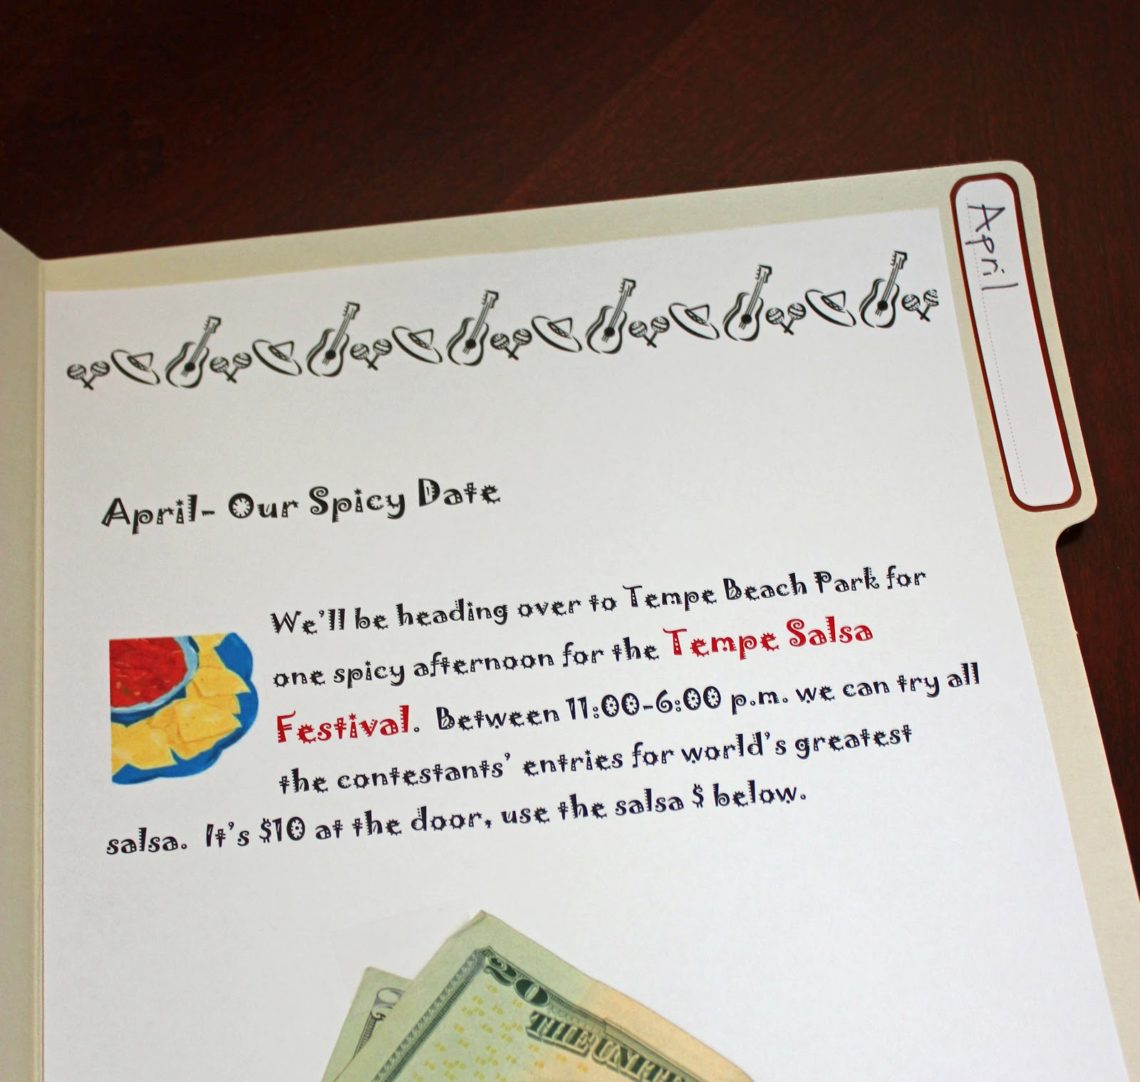 April
April- Our Spicy Date
We'll be heading over to Tempe Beach Park for
one spicy afternoon for the Tempe Salsa
Festival. Between 11:00-6:00 p.m. we can try all
the contestants' entries for world's greatest
salsa. It's $10 at the door, use the salsa $ below.
20
THE UNITE